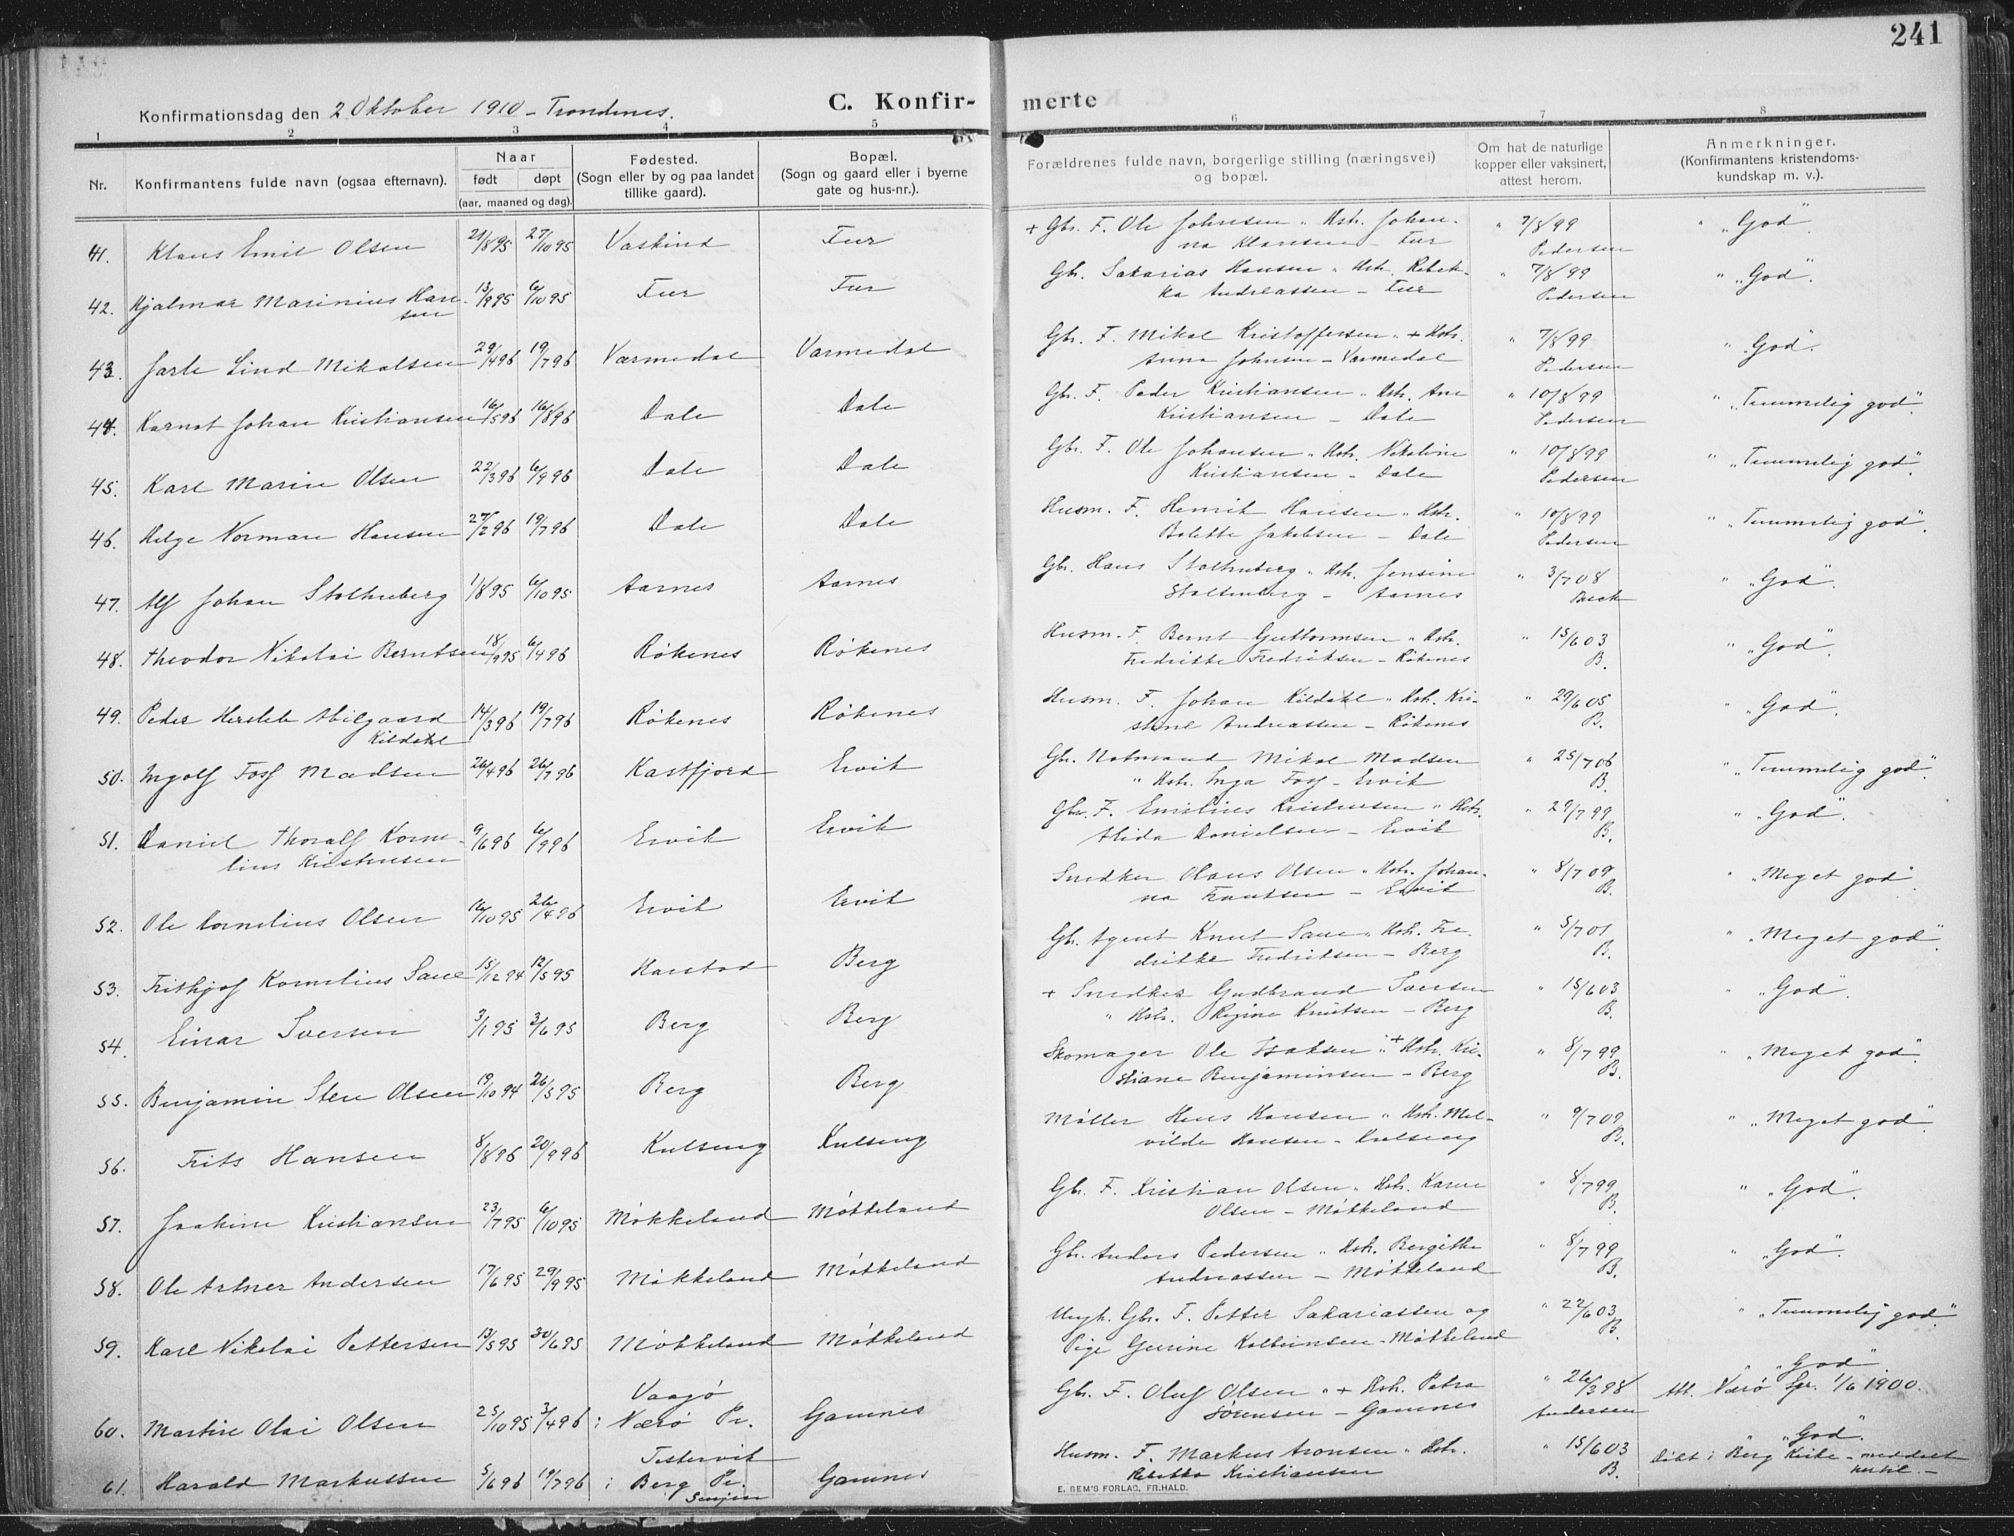 241
Konfirmationsdag den 2 Oktober 1910 - Trondenes.
C. Konfir-
merte
1 2 3 4 5 6 7 8
Nr.
Konfirmantens fulde navn (ogsaa efternavn).
Naar
født
døpt
(aar, maaned og dag).
Fødested.
(Sogn eller by og paa landet
tillike gaard).
Bopæl.
(Sogn og gaard eller i byerne
gate og hus-nr.).
Forældrenes fulde navn, borgerlige stilling (næringsvei)
og bopæl.
Om hat de naturlige
kopper eller vaksinert,
attest herom.
Anmerkninger.
(Konfirmantens kristendoms-
kundskap m. v.).
41. Klaus Emil Olsen 21/8 95 27/10 95 Vaskind Fur + Gbr. F. Ole Johnsen " Hstr. Johan- " 7/8 99 " "God".
na Klausen - Fur Pedersen
42. Hjalmar Marinius Han- 13/9 95 6/10 95 Fur Fur Gbr. Sakarias Hansen " Hstr. Rebek- " 7/8 99 " "God".
sen ka Andreassen - Fur Pedersen
43. Jarle Lind Mikalsen 29/4 96 19/7 96 Varmedal Varmedal Gbr. F. Mikal Kristoffersen " + Hstr. " 7/8 99 " "God".
Anna Johnsen - Varmedal Pedersen
44. Karnot Johan Kristiansen 16/5 96 16/8 96 Dale Dale Gbr. F. Peder Kristiansen " Hstr. Ane " 10/8 99 " "Temmelig god".
Kristiansen - Dale Pedersen
45. Karl Marin Olsen 22/3 96 6/9 96 Dale Dale Gbr. F. Ole Johansen " Hstr. Nikoline " 10/8 99 " "Temmelig god".
Kristiansen - Dale Pedersen
46. Helge Norman Hansen 27/2 96 19/7 96 Dale Dale Husm. F. Henrik Hansen " Hstr. " 10/8 99 " "Temmelig god".
Bolette Jakobsen - Dale Pedersen
47. Alf Johan Stoltenberg 1/8 95 6/10 95 Aarnes Aarnes Gbr. Hans Stoltenberg " Hstr. Jensine " 3/7 08 " "God".
Stoltenberg - Aarnes
48. Theodor Nikolai Berntsen 18/9 95 6/4 96 Røkenes Røkenes Husm. F. Bernt Guttormsen " Hstr. " 15/6 03 " "God".
Fredrikke Fredriksen - Røkenes B.
49. Peder Hersleb Abilgaard 14/3 96 19/7 96 Røkenes Røkenes Husm. F. Johan Kildahl " Hstr. Kri- " 29/6 05 " "God".
Kildahl stine Andreassen - Røkenes B.
50. Ingolf Foss Madsen 26/4 96 26/7 96 Kastfjord Ervik Gbr. Notmand Mikal Madsen " 25/7 06 " "Temmelig god".
" Hstr. Inga Foss - Ervik B.
51. Daniel Thoralf Korne- 9/6 96 6/9 96 Ervik Ervik Gbr. F. Emilius Kristensen " Hstr. " 29/7 99 " "God".
lius Kristensen Alida Danielsen - Ervik B.
52. Ole Cornelius Olsen 16/10 95 26/4 96 Ervik Ervik Snedker Olaus Olsen " Hstr. Johan- " 8/7 09 " "Meget god".
na Frantsen - Ervik B.
53. Frithjof Kornelius Saue 15/12 94 12/5 95 Harstad Berg Gbr. Agent Knut Saue " Hstr. Fre- " 5/7 01 " "Meget god".
drikke Fredriksen - Berg B.
54. Einar Iversen 3/1 95 3/6 95 Berg Berg + Snedker Gudbrand Iversen " 15/6 03 " "God".
" Hstr. Regine Knutsen - Berg B.
55. Benjamin Sten Olsen 19/10 94 26/5 95 Berg Berg Skomager Ole Isaksen " + Hstr. Kri- " 8/7 99 " "Meget god".
stiane Benjaminsen - Berg B.
56. Frits Hansen 8/8 96 20/9 96 Kulseng Kulseng Møller Hans Hansen " Hstr. Mel- " 9/7 09 " "Meget god".
vilde Hansen - Kulseng B.
57. Joakim Kristiansen 23/7 95 6/10 95 Møkkeland Møkkeland Gbr. F. Kristian Olsen " Hstr. Karen " 8/7 99 " "God".
Olsen - Møkkeland B.
58. Ole Artner Andersen 17/6 95 29/9 95 Møkkeland Møkkeland Gbr. Anders Pedersen " Hstr. Bergithe " 8/7 99 " "God".
Andreassen - Møkkeland B.
59. Karl Nikolai Pettersen 13/5 95 30/6 95 Møkkeland Møkkeland Ungk. Gbr. F. Petter Sakariassen og " 22/6 03 " "Temmelig god".
Pige Gurine Kolbeinsen - Møkkeland B.
60. Martin Olai Olsen 25/10 95 3/4 96 Vaagø i Nærø Pr. Gamnes Gbr. F. Oluf Olsen " + Hstr. Petra " 26/3 98 "God". Att. Nærø Spr. 1/6 1900.
Sørensen - Gamnes Andersen
61. Harald Markussen 5/6 96 19/7 96 Tistervik i Berg Pr. Senjen Gamnes Husm. F. Markus Aronsen " Hstr. " 15/6 03 " "God".
Rebekka Kristiansen B. Døbt i Berg Kirke - meddelt hertil. -
E. SEM'S FORLAG, FR.HALD.